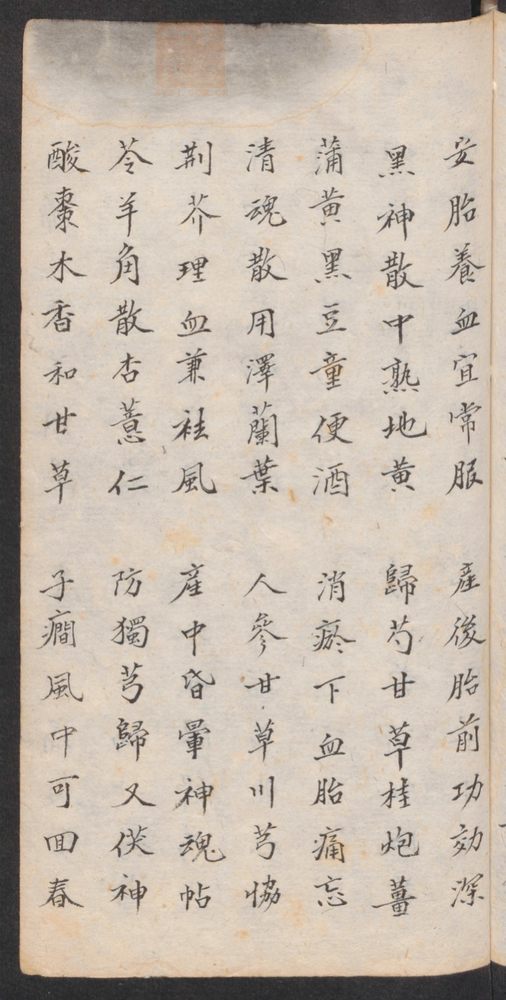 安胎養血宜常服　產後胎前功効深
黑神散中熟地黃　歸芍甘草桂炮薑
蒲黃黑豆童便酒　消瘀下血胎痛忘
清魂散用澤蘭葉　人參甘草川芎恊
荆芥理血兼祛風　產中昏暈神魂帖
苓羊角散杏薏仁　防獨芎歸又伏神
酸棗木香和甘草　子癎風中可回春